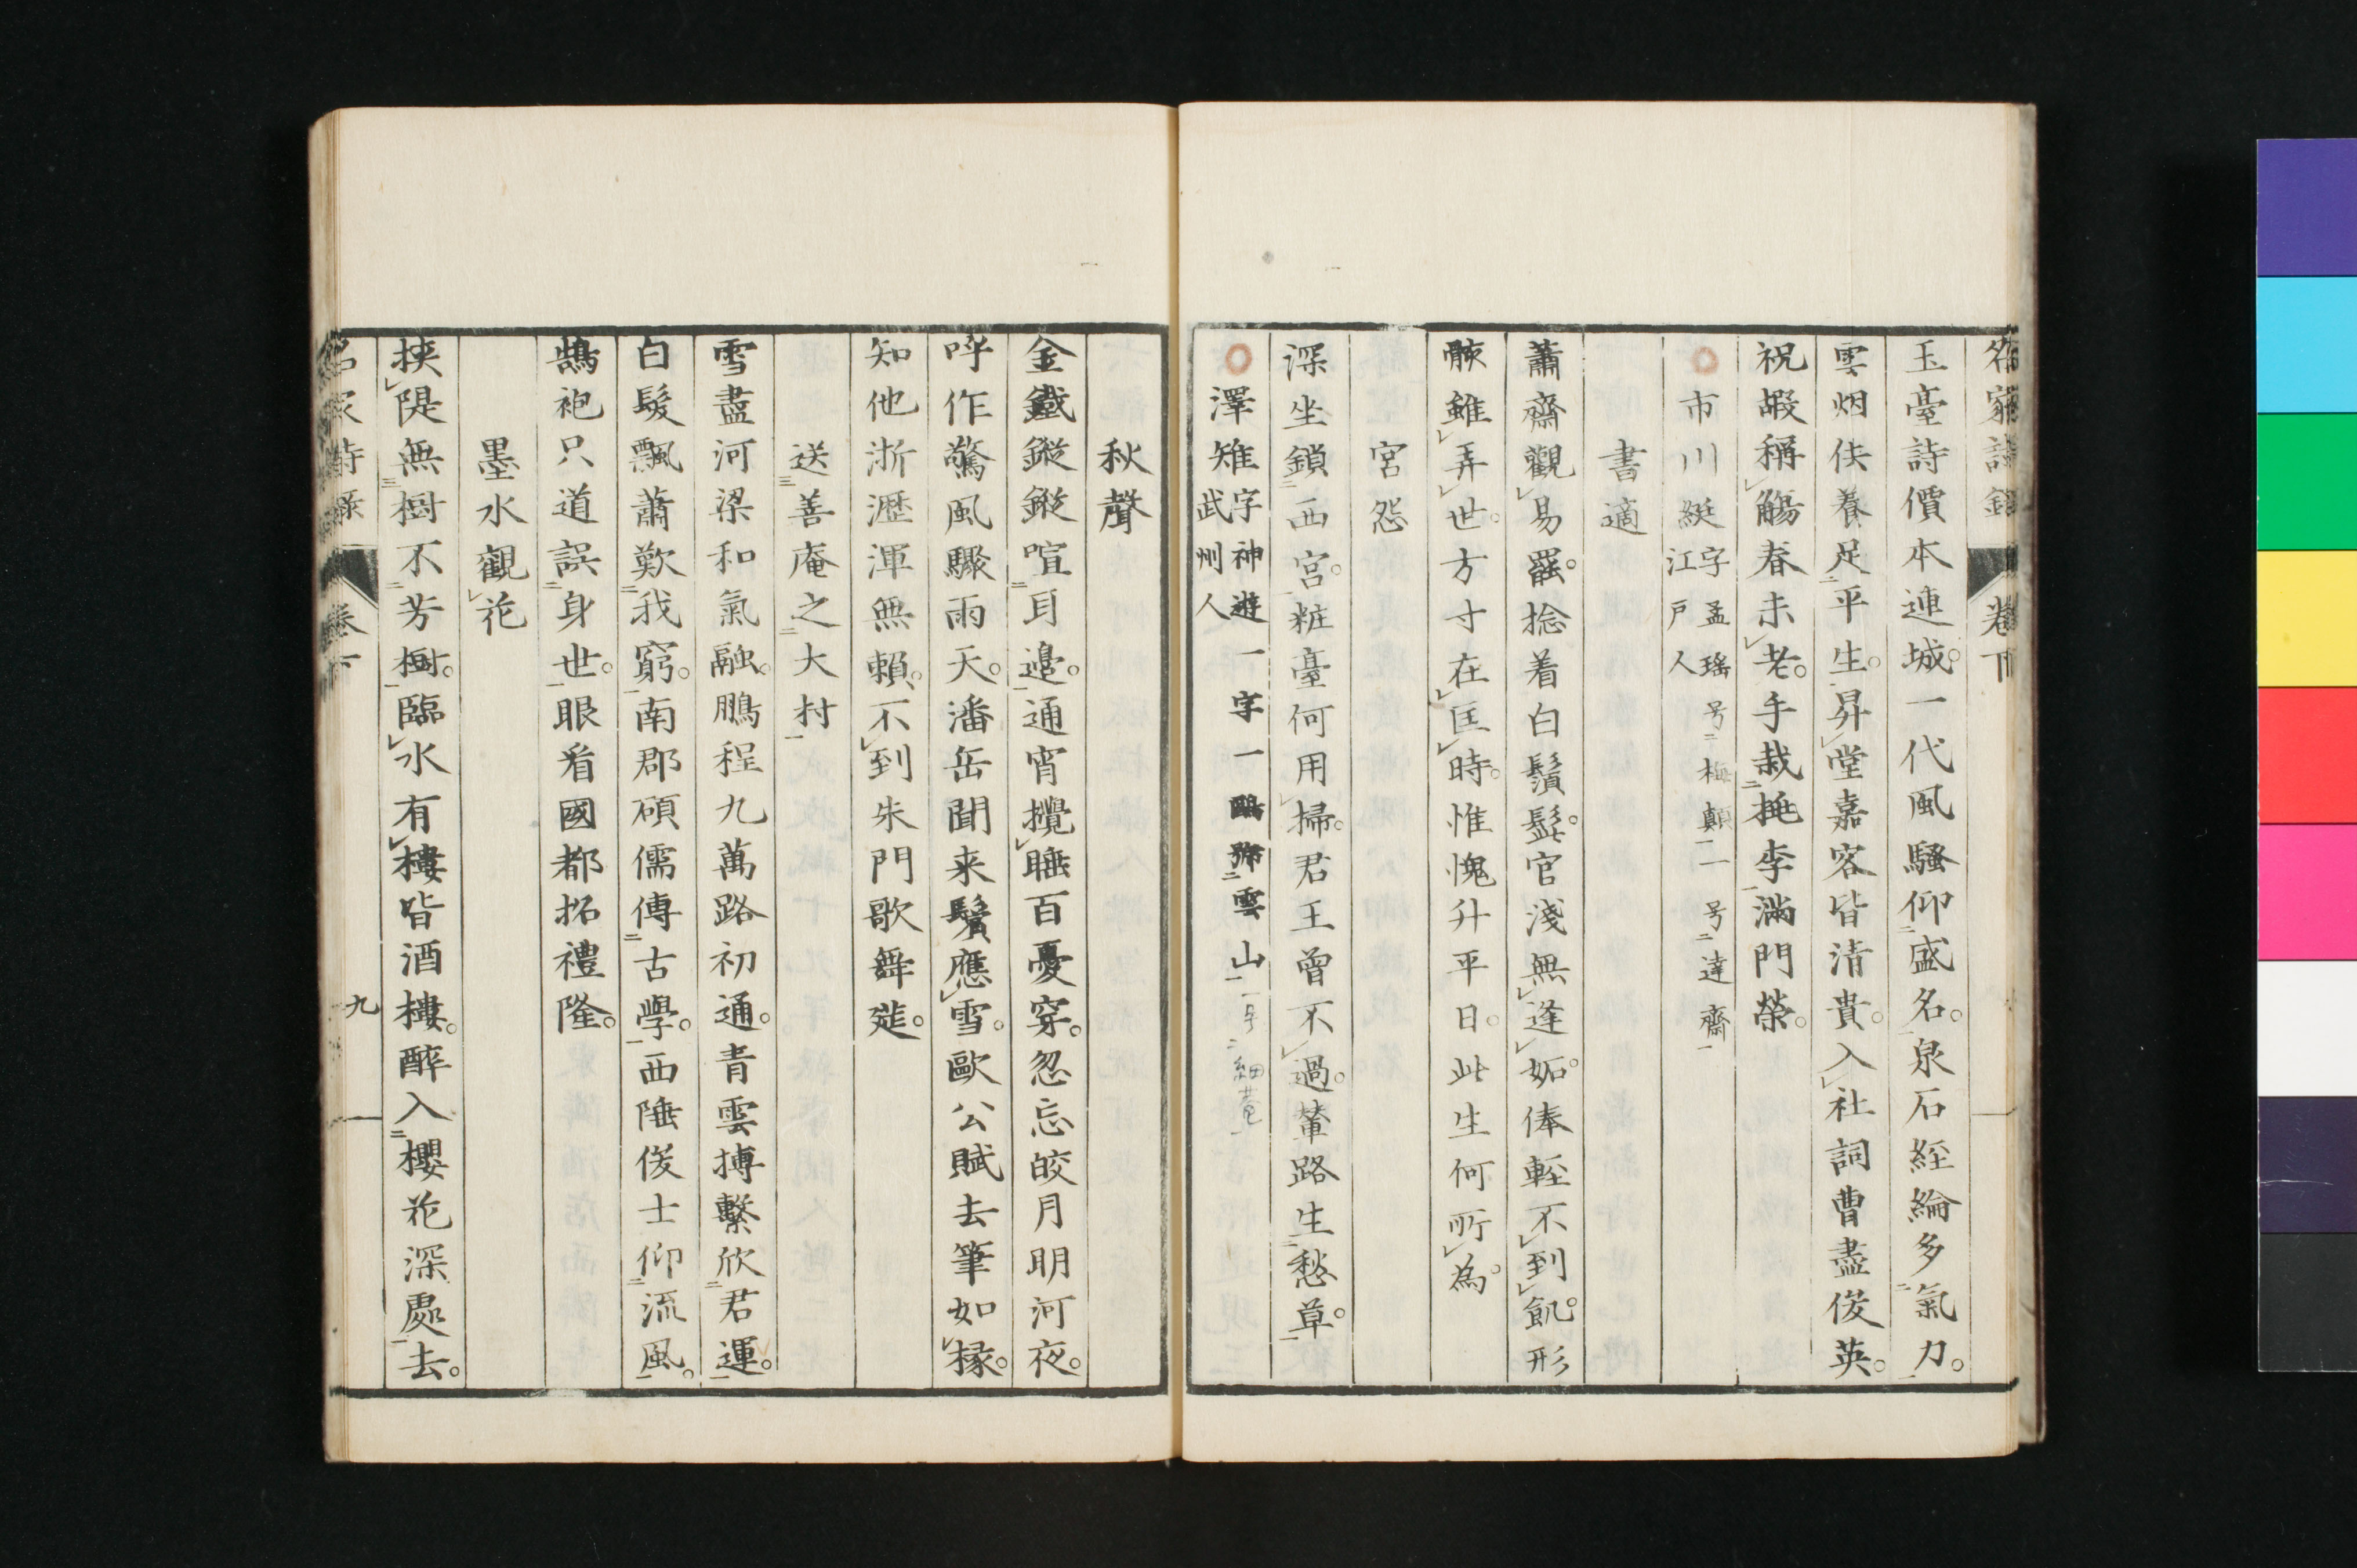 名家詩錄 卷下
玉臺詩價本連城一代風騷仰盛名泉石經綸多氣力
雲烟供養足平生昇堂嘉客皆清貴入社詞曹盡俊英
祝嘏稱觴春未老手栽桃李滿門榮
市川綎字孟瑤号梅顛一号達齋江戶人
書適
蕭齋觀易罷捻着白鬚髭官淺無逢妬俸輕不到飢形
骸雖弄世方寸在匡時惟愧升平日此生何所為
宮怨
深坐鎖西宮粧臺何用掃君王曾不過輦路生愁草
澤雉字神遊一字一鷗號雲山一号細菴武州人
秋聲
金鐵鏦鏦喧耳邊通宵攪睡百憂穿忽忘皎月明河夜
呼作驚風驟雨天潘岳聞来鬢應雪歐公賦去筆如椽
知他淅瀝渾無賴不到朱門歌舞筵
送善庵之大村
雪盡河梁和氣融鵬程九萬路初通青雲搏繫欣君運
白髮飄蕭歎我窮南郡碩儒傳古學西陲俊士仰流風
鵠袍只道誤身世眼看國都拓禮隆
墨水觀花
挾隄無樹不芳樹臨水有樓皆酒樓醉入櫻花深處去
名家詩錄 卷下 九